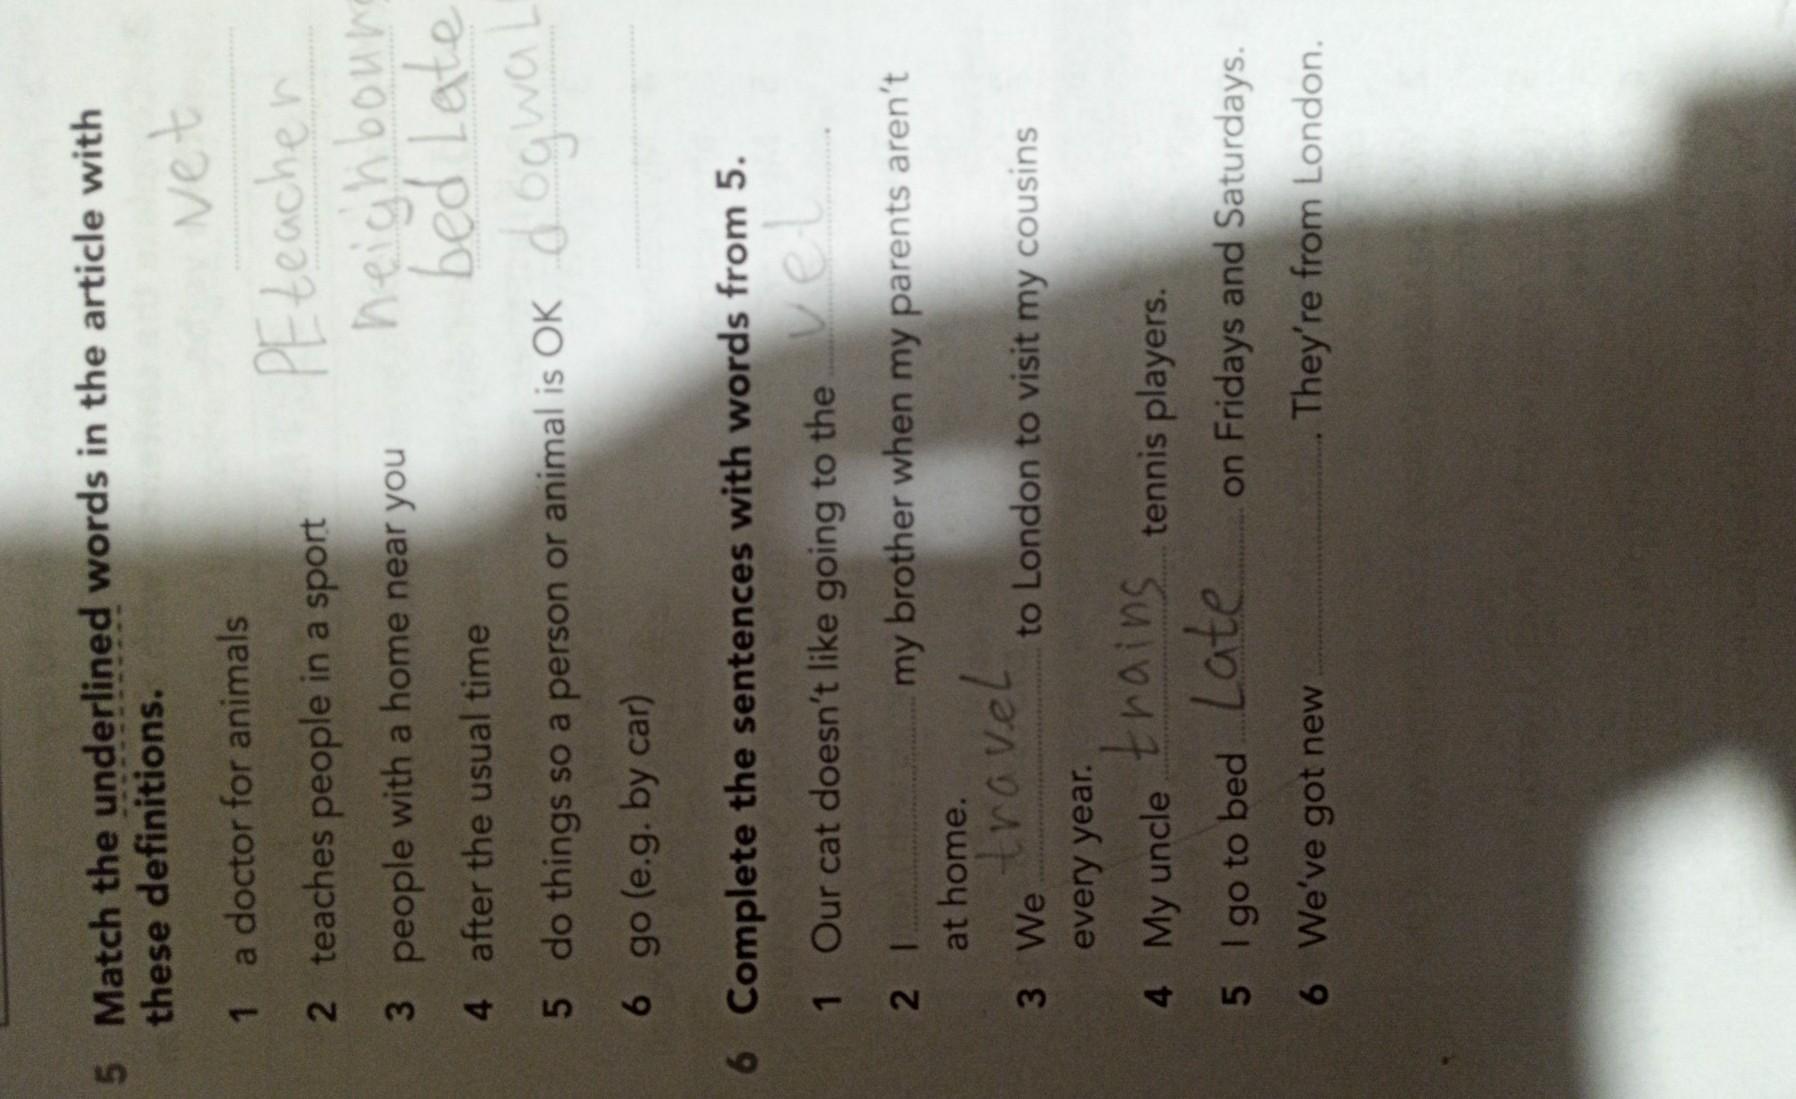 5 Match the underlined words in the article with
these definitions.
1 a doctor for animals vet
2 teaches people in a sport PE teacher
3 people with a home near you
4 after the usual time bed late
5 do things so a person or animal is OK
6 go (e.g. by car)
6 Complete the sentences with words from 5.
1 Our cat doesn't like going to the vet.
2 I my brother when my parents aren't
at home.
3 We travel to London to visit my cousins
every year.
4 My uncle trains tennis players.
5 I go to bed Late on Fridays and Saturdays.
6 We've got new . They're from London.